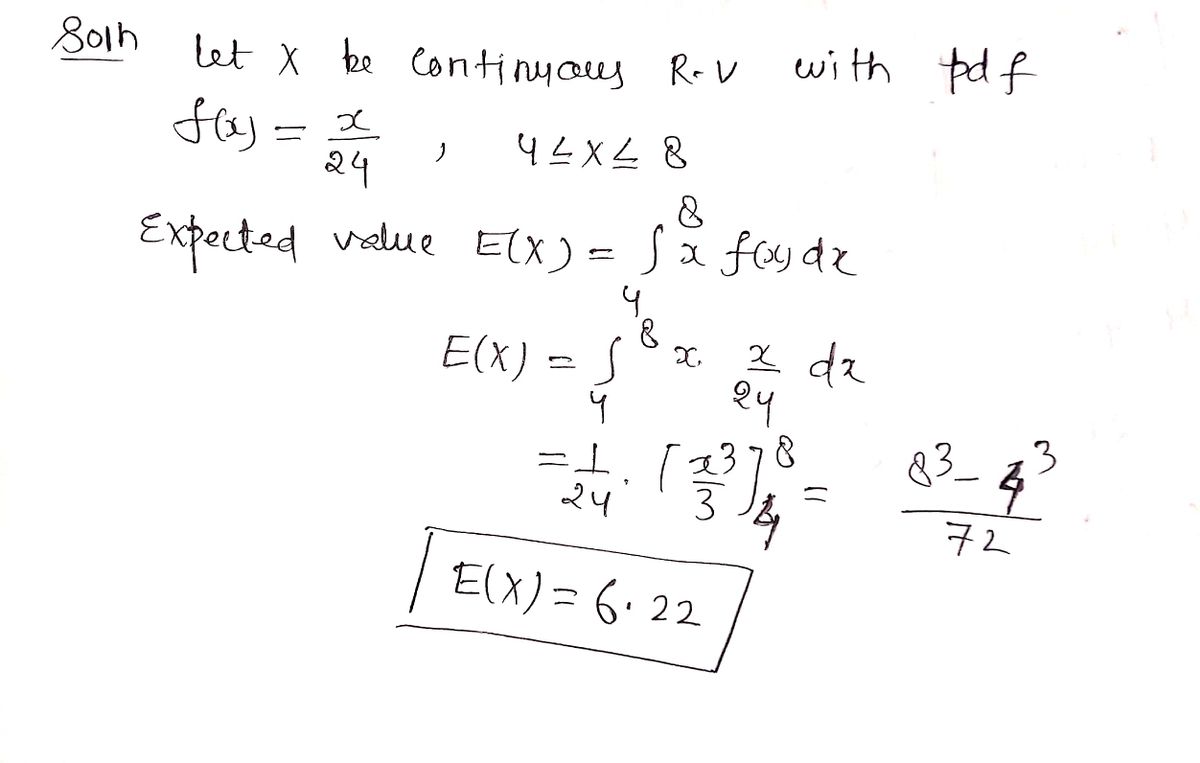 Soln Let X be Continuous R.V with pdf
f(x) = x/24 , 4 ≤ X ≤ 8
Expected value E(X) = ∫₄⁸ x f(x) dx
E(X) = ∫₄⁸ x. x/24 dx
= 1/24 . [x³/3]₄⁸ = 8³ - 4³/72
E(X) = 6.22